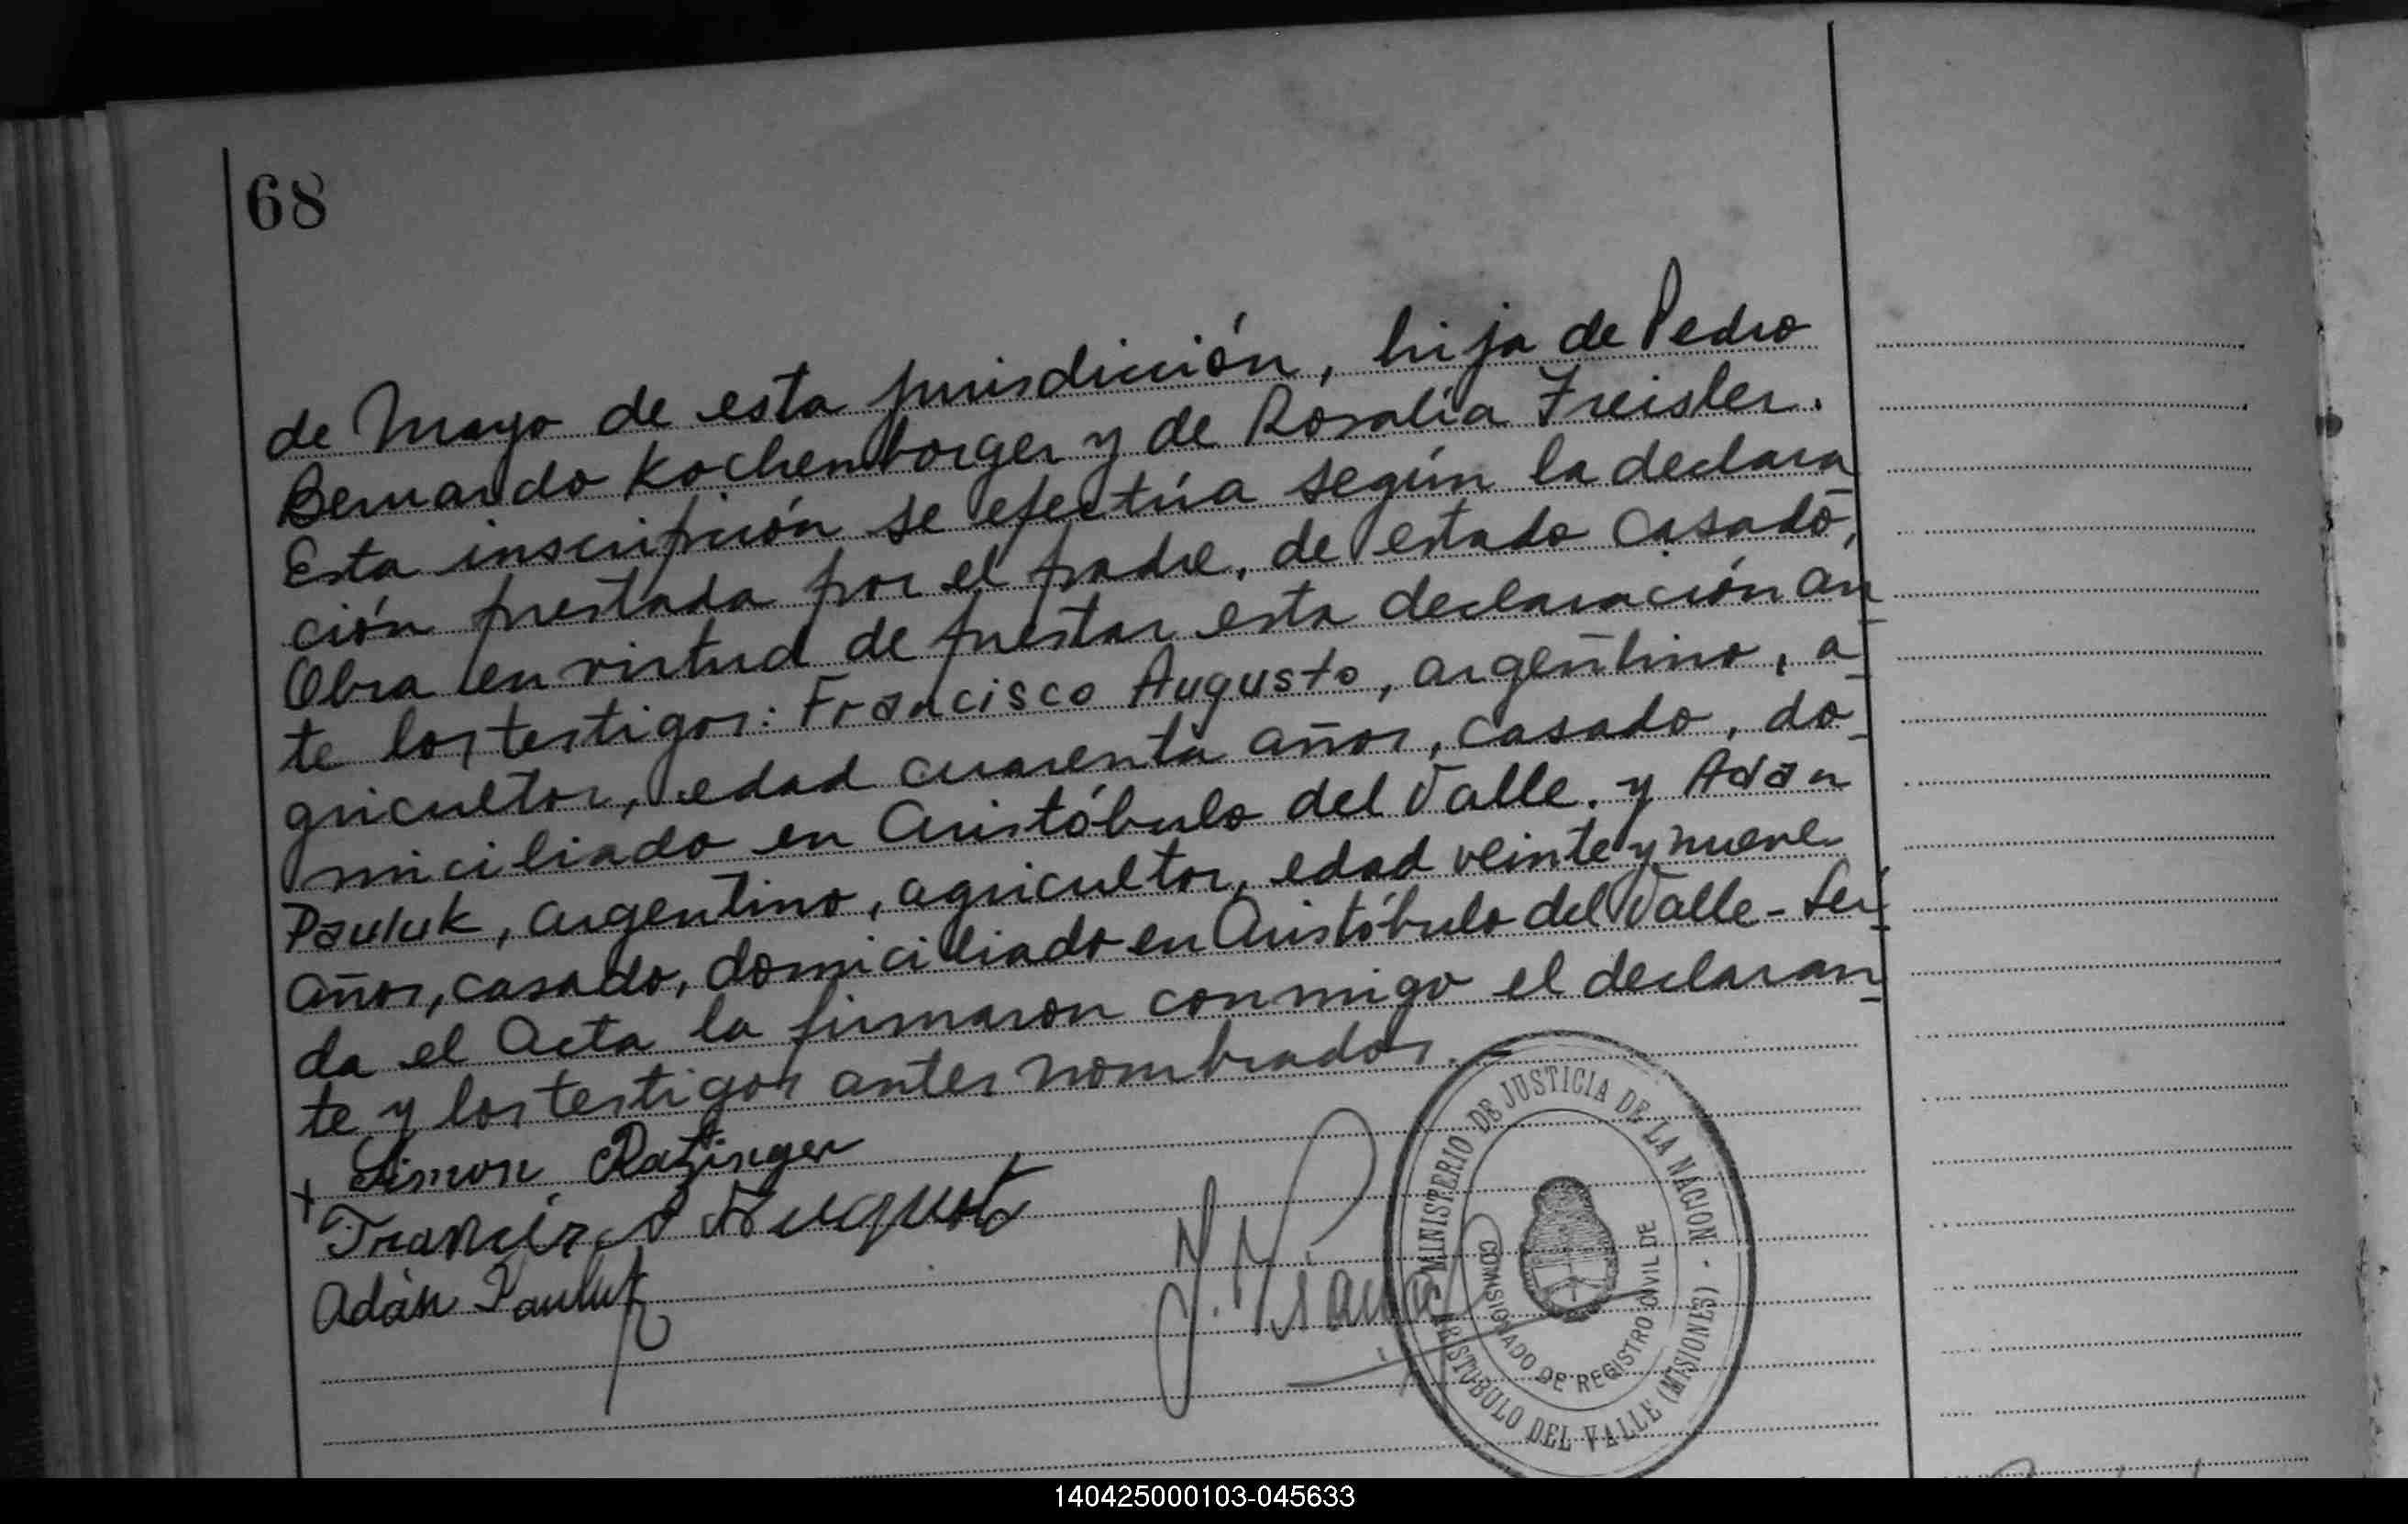 68
de Mayo de esta jurisdicción, hija de Pedro
Bernardo Kochenborger y de Rosalía Freisler.
Esta inscripción se efectúa según la declara
ción prestada por el padre, de estado casado,
Obra en virtud de prestar esta declaración an-
te los testigos: Francisco Augusto, argentino, a-
gricultor, edad cuarenta años, casado, do-
miciliado en Aristóbulo del Valle. y Adan
Pauluk, argentino, agricultor, edad veinte y nueve
años, casado, domiciliado en Aristóbulo del Valle - Leí-
da el Acta la firmaron conmigo el declaran-
te y los testigos antes nombrados.-
x Simon Ratzinger
Francisco August
Adán Pauluk
MINISTERIO DE JUSTICIA DE LA NACION - ARISTOBULO DEL VALLE (MISIONES)
COMISIONADO DE REGISTRO CIVIL DE
140425000103-045633